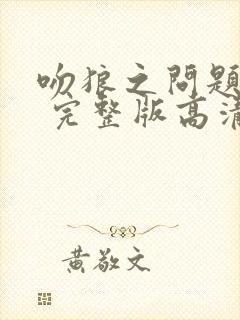 吻狼之問題
完整版高清
黃敬文